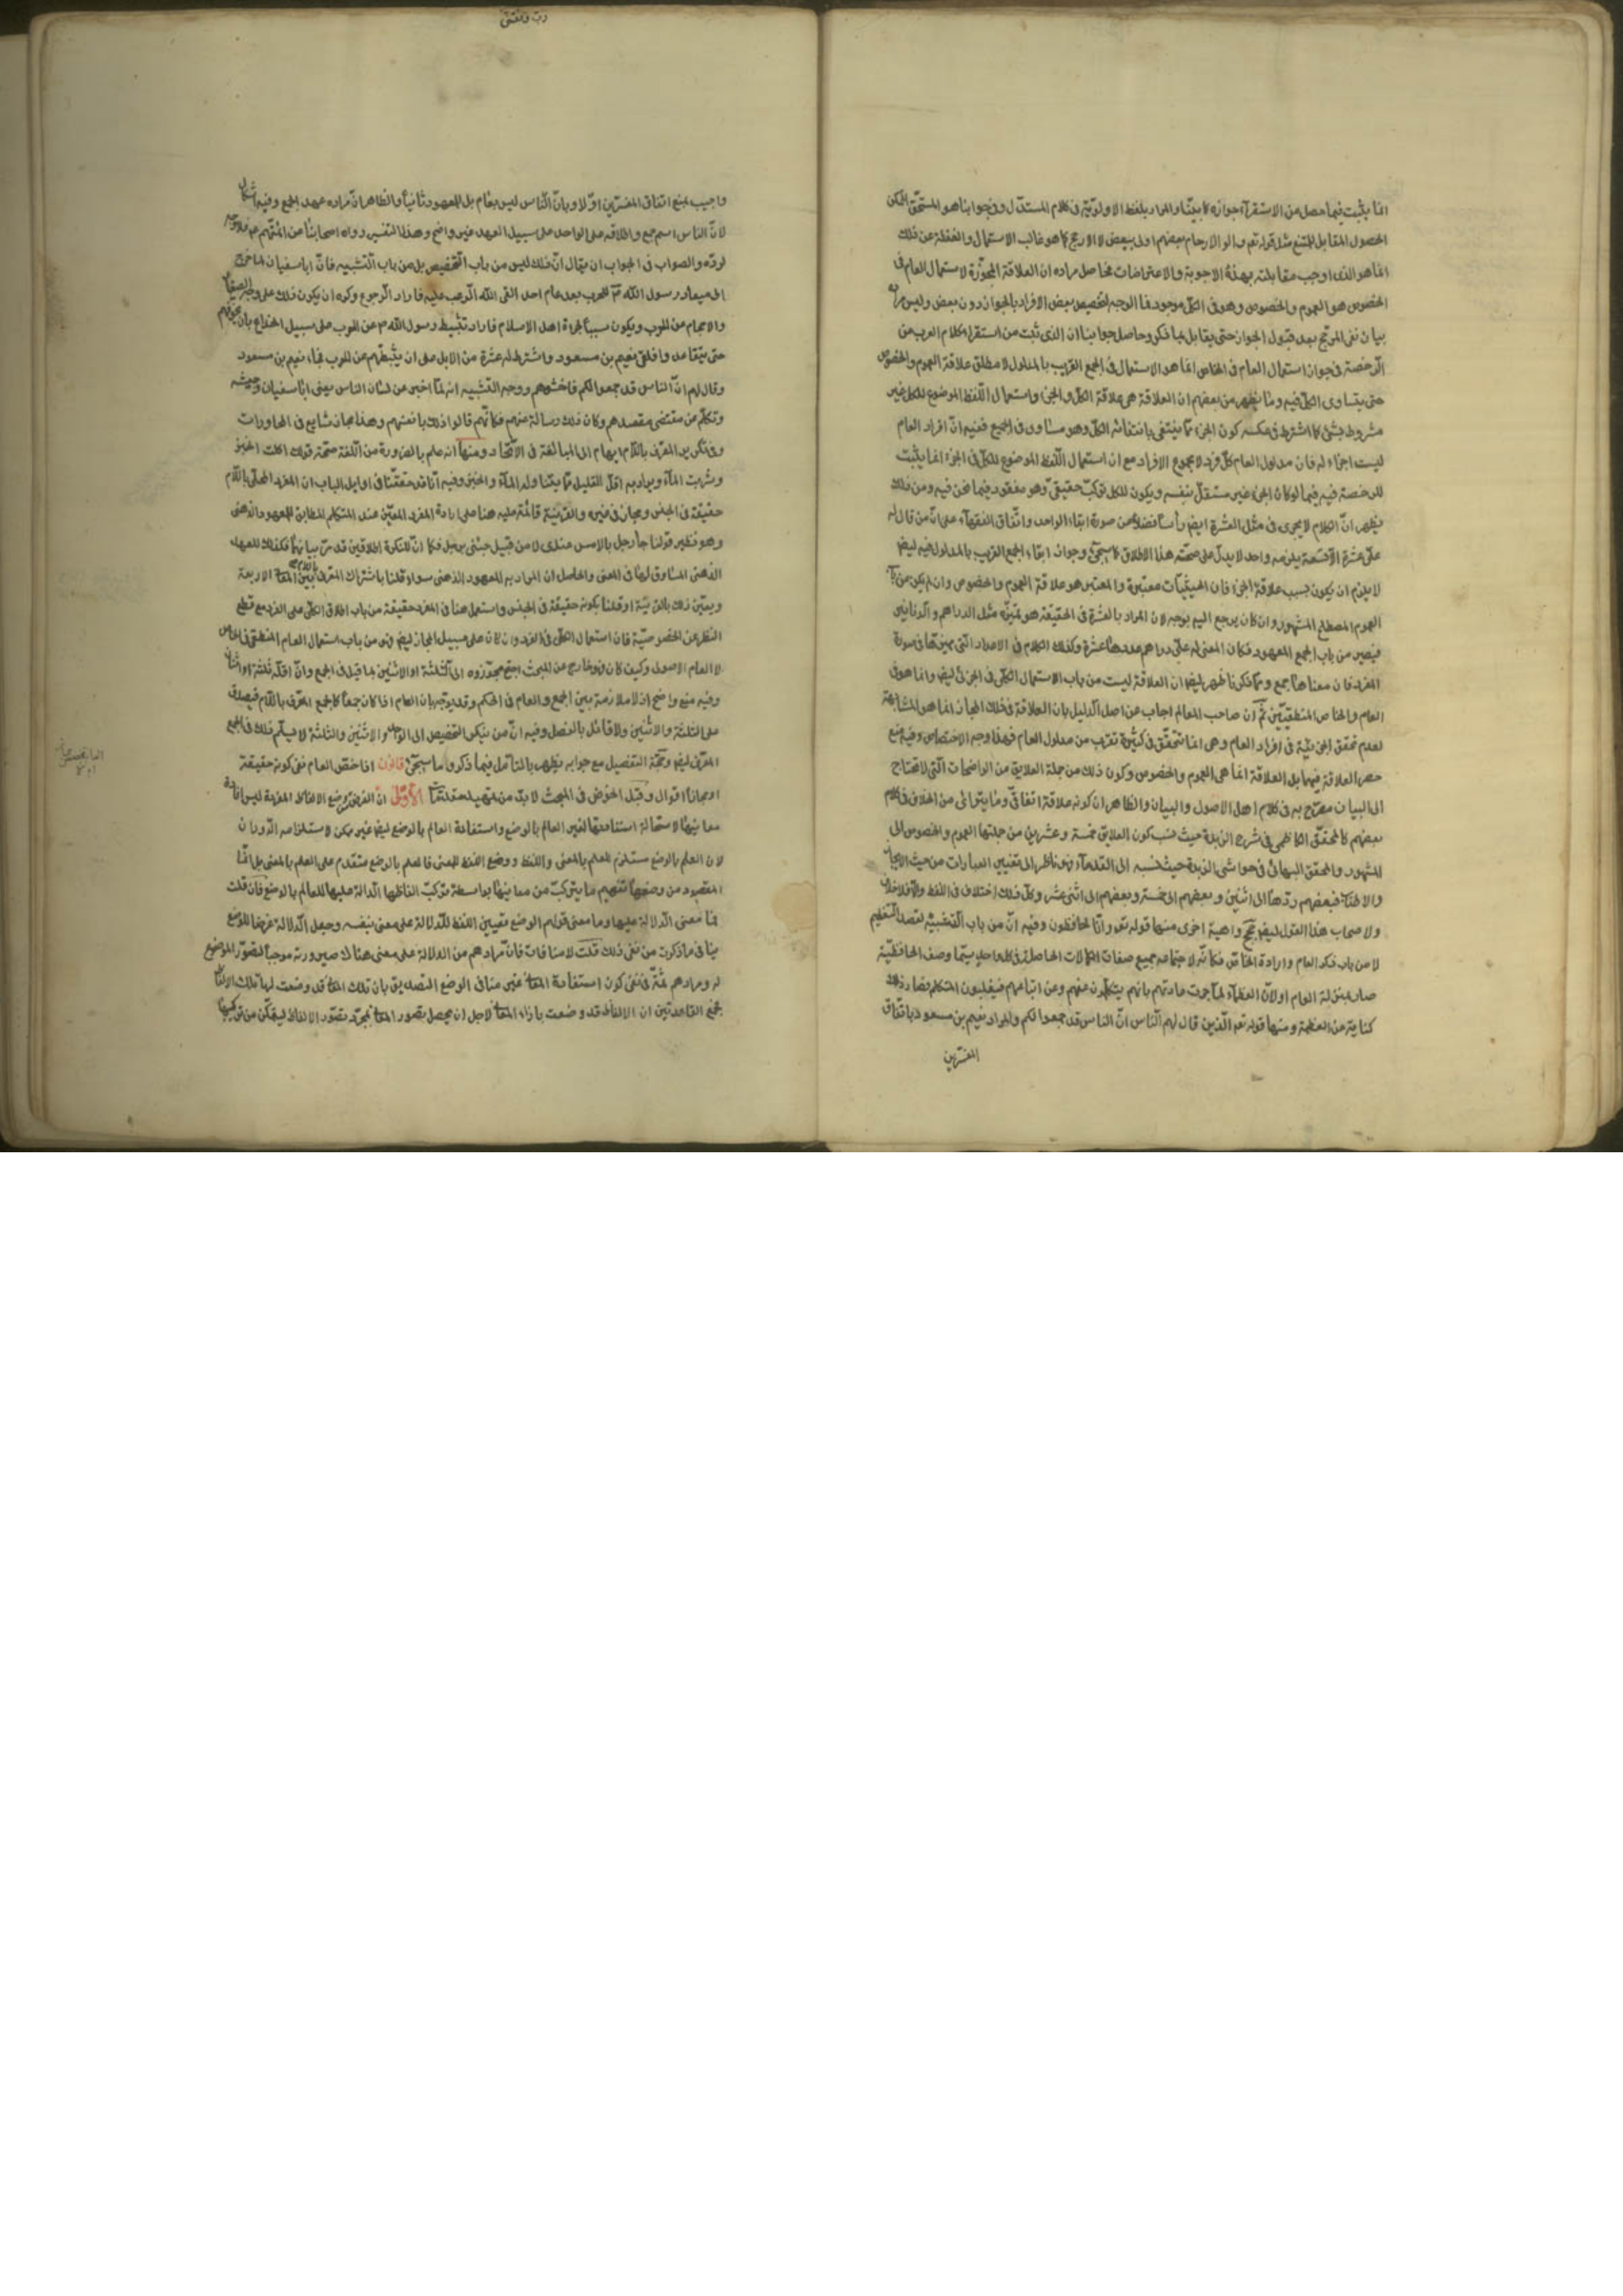 انما يثبت فيما حصل من الاستقرآء جوازه كما بيّنّا والمراد بلفظ الاولويّة فى كلام المستدلّ وفى جوابنا هو المستحقّ الممكن
الحصول المقابل للمتنع مثل قوله تعم واولوا الارحام بعضهم اولى ببعض لا الارجح كما هو غالب الاستعمال والغفلة عن ذلك
انما هو الذى اوجب مقابلته بهذه الاجوبة والاعتراضات فحاصل مراده ان العلاقة المجوّزة لاستعمال العام فى
الخصوص هو العموم والخصوص وهو فى الكلّ موجود فما الوجه لتخصيص بعض الافراد بالجواز دون بعض وليس مراده
بيان نفى المرجّح بعد قبول الجواز حتى يقابل بما ذكر وحاصل جوابنا ان الذى ثبت من استقراء كلام العرب من
الرّخصة فى جواز استعمال العام فى الخاص انما هو الاستعمال فى الجمع القريب بالمدلول لا مطلق علاقة العموم والخصوص
حتى يتساوى الكلّ فيه وما يظهر من بعضهم ان العلاقة هى علاقة الكلّ والجزء واستعمال اللّفظ الموضوع للكل غير
مشروط بشئ كما اشترط فى عكسه كون الجزء ممّا ينتفى بانتفائه الكلّ وهو مساو فى الجميع ففيه انّ افراد العام
ليست اجزاء له فان مدلول العام كلّ فرد لا مجموع الافراد مع ان استعمال اللّفظ الموضوع للكلّ فى الجزء انما يثبت
الرخصة فيه فيما لو كان الجزء غير مستقلّ بنفسه ويكون للكل تركّب حقيقىّ وهو مفقود فيما نحن فيه ومن ذلك
يظهر انّ الكلام لا يجرى فى مثل العشرة ايض رأسا فضلا من صورة ابقاء الواحد واتّفاق الفقهآء على انّ من قال له
علىّ عشرة الّا تسعة يلزمه واحد لا يدلّ على صحّته هذا الاطلاق كما سيجئ وجواز ابقاء الجمع القريب بالمدلول فيه ايض
لا يلزم ان يكون بسبب علاقة الجزء فان الحيثيّات معتبرة والمعتبر هو علاقة العموم والخصوص وان لم يكن من باب
العموم المصطلح المشهور وان كان يرجع اليه بوجه لان المراد بالعشرة فى الحقيقة هو تميّزه مثل الدراهم والدنانير
فيصير من باب الجمع المعهود فكان المعنى له علىّ دراهم عددها عشرة وكذلك الكلام فى الاعداد التى تميّزها فى صورة
المفرد فان معناها جمع وممّا ذكرنا ظهر ايض ان العلاقة ليست من باب الاستعمال الكلّى فى الجزئى ايض وانما هو فى
العام والخاص المنطقيّين ثمّ ان صاحب المعالم اجاب عن اصل الدليل بان العلاقة فى ذلك المجاز انما هو المشابهة
لعدم تحقق الجزئيّة فى افراد العام وهى انما تتحقّق فى كثيرة تقرب من مدلول العام فهذا وجه الاختصاص وفيه منع
حصر العلاقة فيهما بل العلاقة انما هى العموم والخصوص وكون ذلك من جملة العلايق من الواضحات الّتى لا تحتاج
الى البيان مصرّح به فى كلام اهل الاصول والبيان والظاهر ان كونه علاقة اتفاقىّ وما يتراءى من الخلاف فى كلام
بعضهم كالمحقّق الكاظمى فى شرح الزبدة حيث نسب كون العلايق خمسة وعشرين من جملتها العموم والخصوص الى
المشهور والمحقق البهائى فى حواشى الزبدة حيث نسبه الى القدمآء فهو ناظر الى تغيير العبارات من حيث الايجاز
والاطناب فبعضهم ردّها الى اثنين وبعضهم الى خمسة وبعضهم الى اثنى عشر وكلّ ذلك اختلاف فى اللفظ والّا فلا خلاف
ولاصحاب هذا القول ايض حجج واهية اخرى منها قوله تعم وانّا له لحافظون وفيه انّ من باب التشبيه لقصد التعظيم
لا من باب ذكر العام وارادة الخاصّ فكانّه لاجتماعه بجميع صفات الكمالات الحاصلة فى كل واحد سيّما وصف الحافظيّة
صار بمنزلة العام او لانّ العظمآء لما جرت عادتهم بانهم يتكلّمون عنهم وعن اتباعهم فيغلبون المتكلم فصار ذلك
كناية عن العظمة ومنها قوله تعم الّذين قال لهم النّاس انّ الناس قد جمعوا لكم والمراد نعيم بن مسعود باتّفاق
المفسّرين
واجيب بمنع اتفاق المفسّرين اوّلا وبانّ النّاس ليس بعام بل للمعهود ثانياً والظاهر انّ مراده عهد الجمع وفيه اشكال
لانّ الناس اسم جمع واطلاقه على الواحد على سبيل العهد غير واضح وهذا التفسير رواه اصحابنا عن ائمّتهم عم فلا وجه
لردّه والصواب فى الجواب ان يقال انّ ذلك ليس من باب التخصيص بل من باب التّشبيه فانّ اباسفيان لما خرج
الى ميعاد رسول اللّه ص للحرب بعد عام احد القى اللّه الرّعب عليه فاراد الرّجوع وكره ان يكون ذلك على وجه الصغار
والاحجام من الحرب ويكون سبباً لجرءة اهل الاسلام فاراد تثبيط رسول اللّه ص عن الحرب على سبيل الخداع بان يخوّفهم
حتى يتقاعد وافلق نعيم بن مسعود واشترط له عشرة من الابل على ان يثبّطهم عن الحرب فجاء نعيم بن مسعود
وقال لهم انّ الناس قد جمعوا لكم فاخشوهم ووجه التشبيه انه لمّا اخبر عن لسان الناس يعنى اباسفيان وجيشه
وتكلّم عن مقتضى مقصدهم وكان ذلك رسالة عنهم فكانّهم قالوا ذلك بانفسهم وهذا مجاز شايع فى المحاورات
وفى تكرير المعرّف باللّام ايهام الى المبالغة فى الاتّحاد ومنها انه علم بالضرورة من اللّغة صحّة قولك اكلت الخبز
وشربت المآء ويراد به اقلّ القليل ممّا يتناوله المآء والخبز وفيه انّا قد حقّقنا فى اوايل الباب ان المفرد المحلّى باللّام
حقيقة فى الجنس ومجاز فى غيره والقرينة قائمة عليه هنا على ارادة المفرد المعيّن عند المتكلم المطابق للمعهود الذهنى
وهو نظير قولنا جاء رجل بالامس عندى لا من قبيل جئنى برجل فكما انّ للنكرة اطلاقين قد مرّ بيانهما فكذلك للعهد
الذهنى المساوق لها فى المعنى والحاصل ان المراد به المعهود الذهنى سواء قلنا باشتراك المعرف باللّام بين المعا الاربعة
ويعيّن ذلك بالقرينة او قلنا بكونه حقيقة فى الجنس واستعمل هنا فى المفرد حقيقة من باب اطلاق الكلّى على الفرد مع قطع
النظر عن الخصوصيّة فان استعمال الكلّى فى الفرد وان كان على سبيل المجاز ايض فهو من باب استعمال العام المنطقى فى الخاص
لا العام الاصولى وكيف كان فهو خارج عن المبحث احتج مجوّزوه الى الثلثة او الاثنين بما قيل فى الجمع وانّ اقلّه ثلثة او اثنان
وفيه منع واضح اذ لا ملازمة بين الجمع والعام فى الحكم وقد يوجّه بان العام اذا كان جمعاً كالجمع المعرّف باللّام فيصدق
على الثلثة والاثنين ولا قائل بالفصل وفيه انّ من ينكر التخصيص الى الواحد والاثنين والثلثة لا يسلّم ذلك فى الجمع
المعرّف ايض وحجّة التفصيل مع جوابه يظهر بالتأمّل فيما ذكر وما سيجئ قانون اذا خصّ العام ففى كونه حقيقة
او مجازاً اقوال وقبل الخوض فى المبحث لا بدّ من تمهيد مقدّمات الاولى انّ الغرض من وضع الالفاظ المفردة ليس افادة
معانيها لاستحالة استفادتها لغير العالم بالوضع واستفادة العالم بالوضع ايض غير ممكن لاستلزامه الدّور لان
لان العلم بالوضع مستلزم للعلم بالمعنى واللفظ ووضع اللفظ للمعنى فالعلم بالوضع متقدم على العلم بالمعنى بل انّما
المقصود من وضعها تفهيم ما يتركّب من معانيها بواسطة تركّب الفاظها الدالة عليها للعالم بالوضع فان قلت
فما معنى الدلالة عليها وما معنى قولهم الوضع تعيين اللفظ للدّلالة على معنى بنفسه وجعل الدّلالة غرضاً للوضع
ينافى ما ذكرت من نفى ذلك قلت لا منافات فانّ مرادهم من الدلالة على معنى هنا صيرورته موجباً لتصوّر الموضوع
له ومرادهم ثمّة فى نفى كون استفادة المعا غير منافى الوضع التصديق بان تلك المعا قد وضعت لها تلك الالفاظ
فجمع القاعدتين ان الالفاظ قد وضعت بازاء المعا لاجل ان يحصل تصور المعا بمجرّد تصوّر الالفاظ ليمكّن من تركيبها